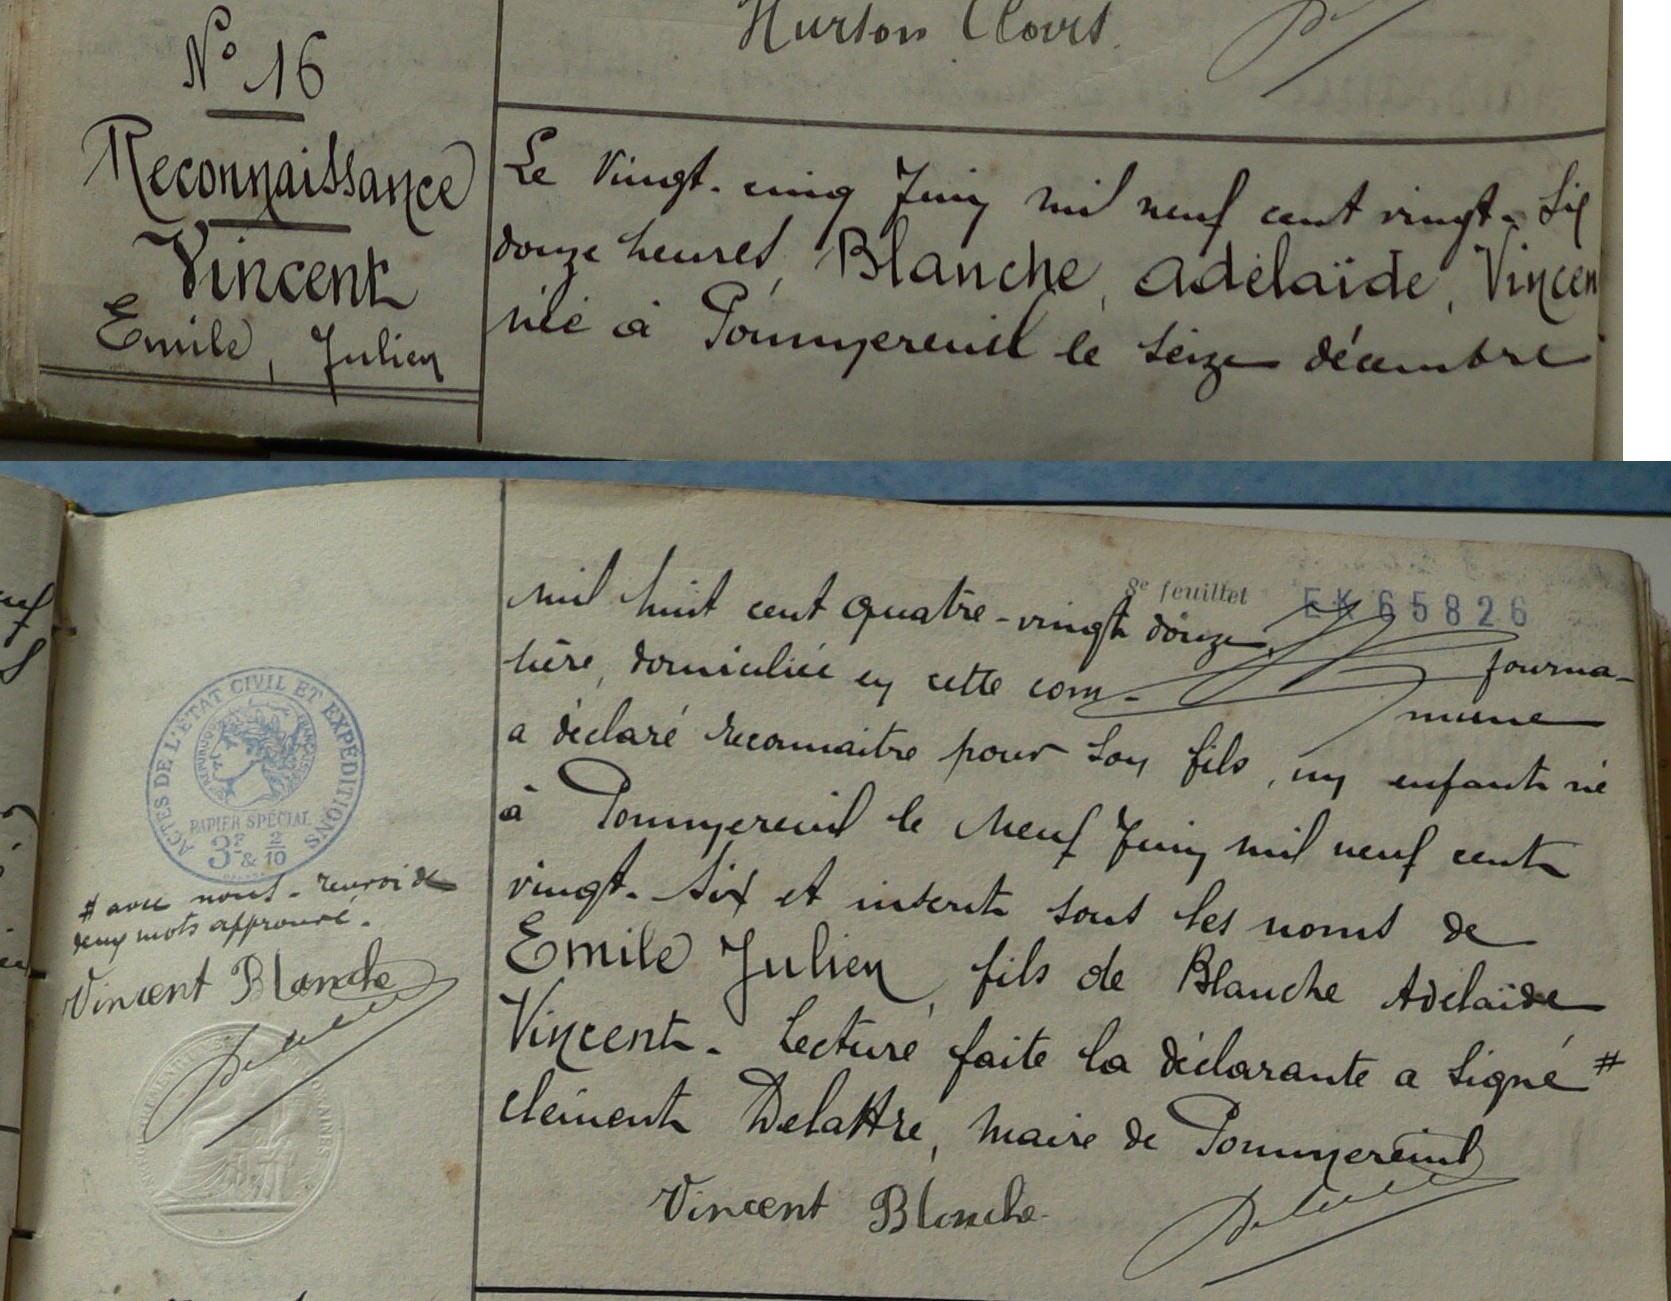 Hurson Clovis.
N° 16
Reconnaissance
Vincent
Emile, Julien
Le vingt-cinq Juin mil neuf cent vingt-six
douze heures, Blanche, Adélaïde, Vincen
née à Pommereuil le seize décembre
8e feuillet EK 65826
mil huit cent quatre-vingt douze, journa-
lière, domiciliée en cette com-mune
a déclaré reconnaitre pour son fils, un enfant né
à Pommereuil le neuf Juin mil neuf cent
vingt-six et inscrit sous les noms de
Emile Julien, fils de Blanche Adélaïde
Vincent. Lecture faite la déclarante a signé #
Clément Delattre, maire de Pommereuil
Vincent Blanche
ACTES DE L'ETAT CIVIL ET EXPÉDITIONS
RÉPUBLIQUE FRANÇAISE
PAPIER SPECIAL
3F & 2/10
# avec nous - renvoi de
deux mots approuvé.
Vincent Blanche